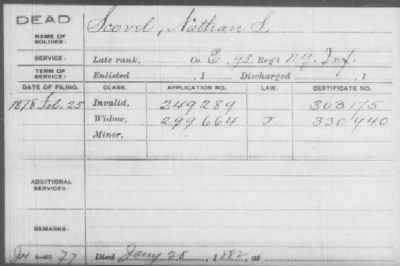 DEAD
NAME OF SOLDIER: Scovel, Nathan S.
SERVICE: Late rank, Co. E, 95 Reg't N.Y. Inf.
TERM OF SERVICE: Enlisted , 1 Discharged , 1
DATE OF FILING. CLASS. APPLICATION NO. LAW. CERTIFICATE NO.
1878 Feb. 25 Invalid, 249289 303175
Widow, 299664 J. 330940
Minor,
ADDITIONAL SERVICES:
REMARKS:
Died Jany 28, 1882,